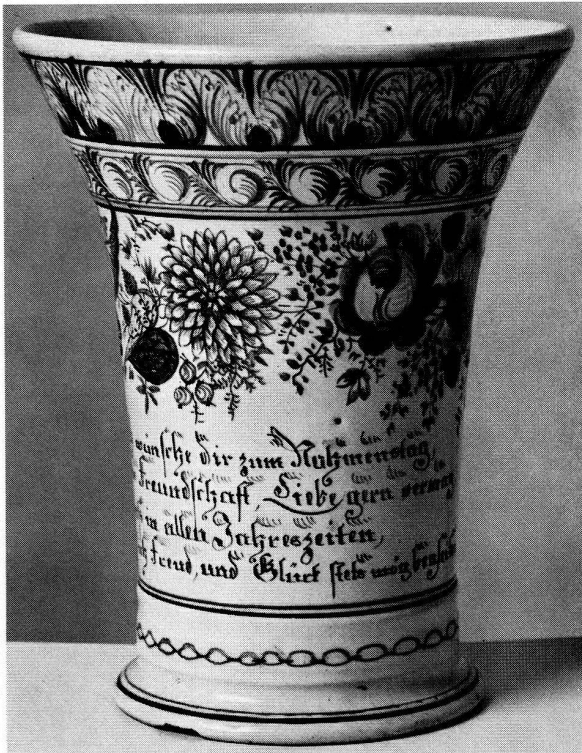 wünsche dir zum Nahmenstag,
Freundschaft, Liebe gern vermag
in allen Jahreszeiten,
Freud, und Glück stets mög